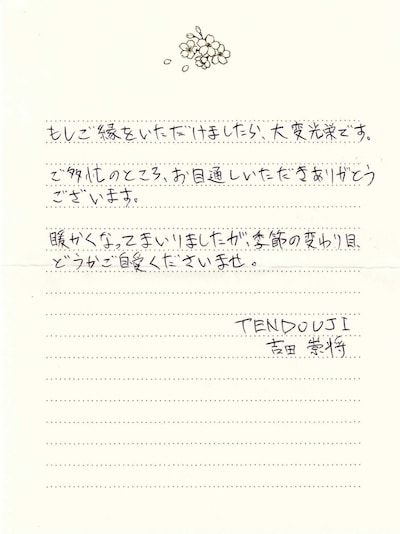 もしご縁をいただけましたら、大変光栄です。
ご多忙のところ、お目通しいただきありがとう
ございます。
暖かくなってまいりましたが、季節の変わり目、
どうかご自愛くださいませ。
TENDOUJI
吉田 崇将